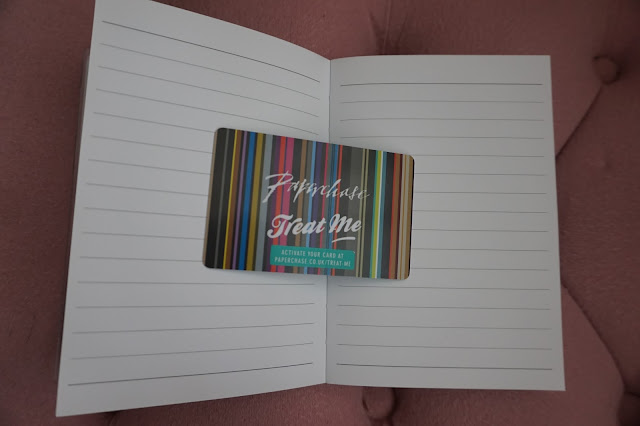 Paperchase
Treat Me
ACTIVATE YOUR CARD AT
PAPERCHASE.CO.UK/TREAT-ME